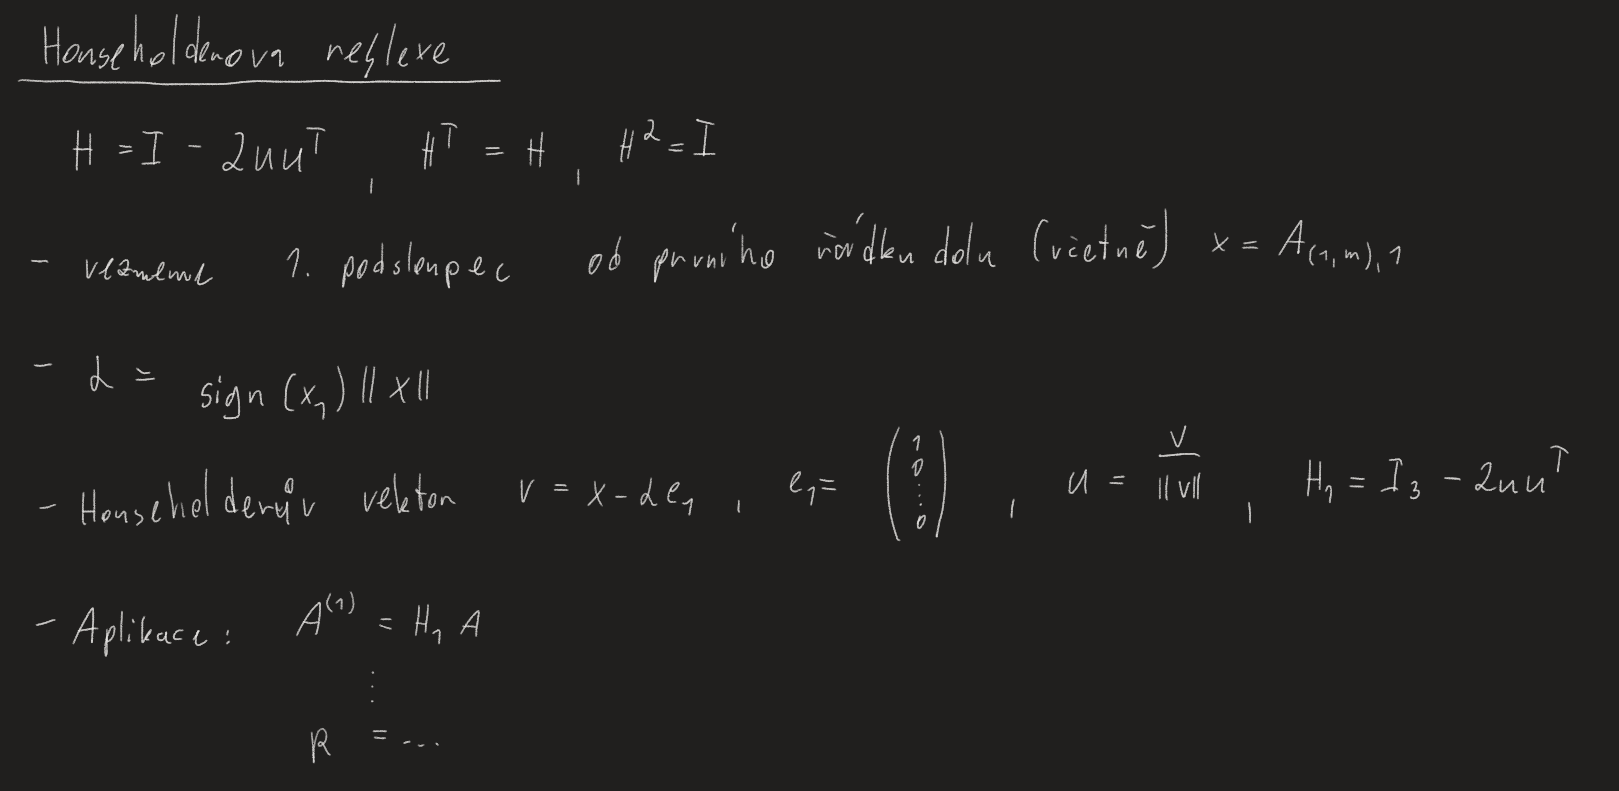 Householderova reflexe
H = I - 2uuᵀ , Hᵀ = H , H² = I
- vezmeme 1. podsloupec od prvního řádku dolu (včetně) x = A₍₁,ₘ₎,₁
- α = sign (x₁) ||x||
- Householderův vektor v = x - αe₁ , e₁ = (1 0 ⋮ 0) , u = v/||v|| , H₁ = I₃ - 2uuᵀ
- Aplikace: A⁽¹⁾ = H₁ A
⋮
R = ...